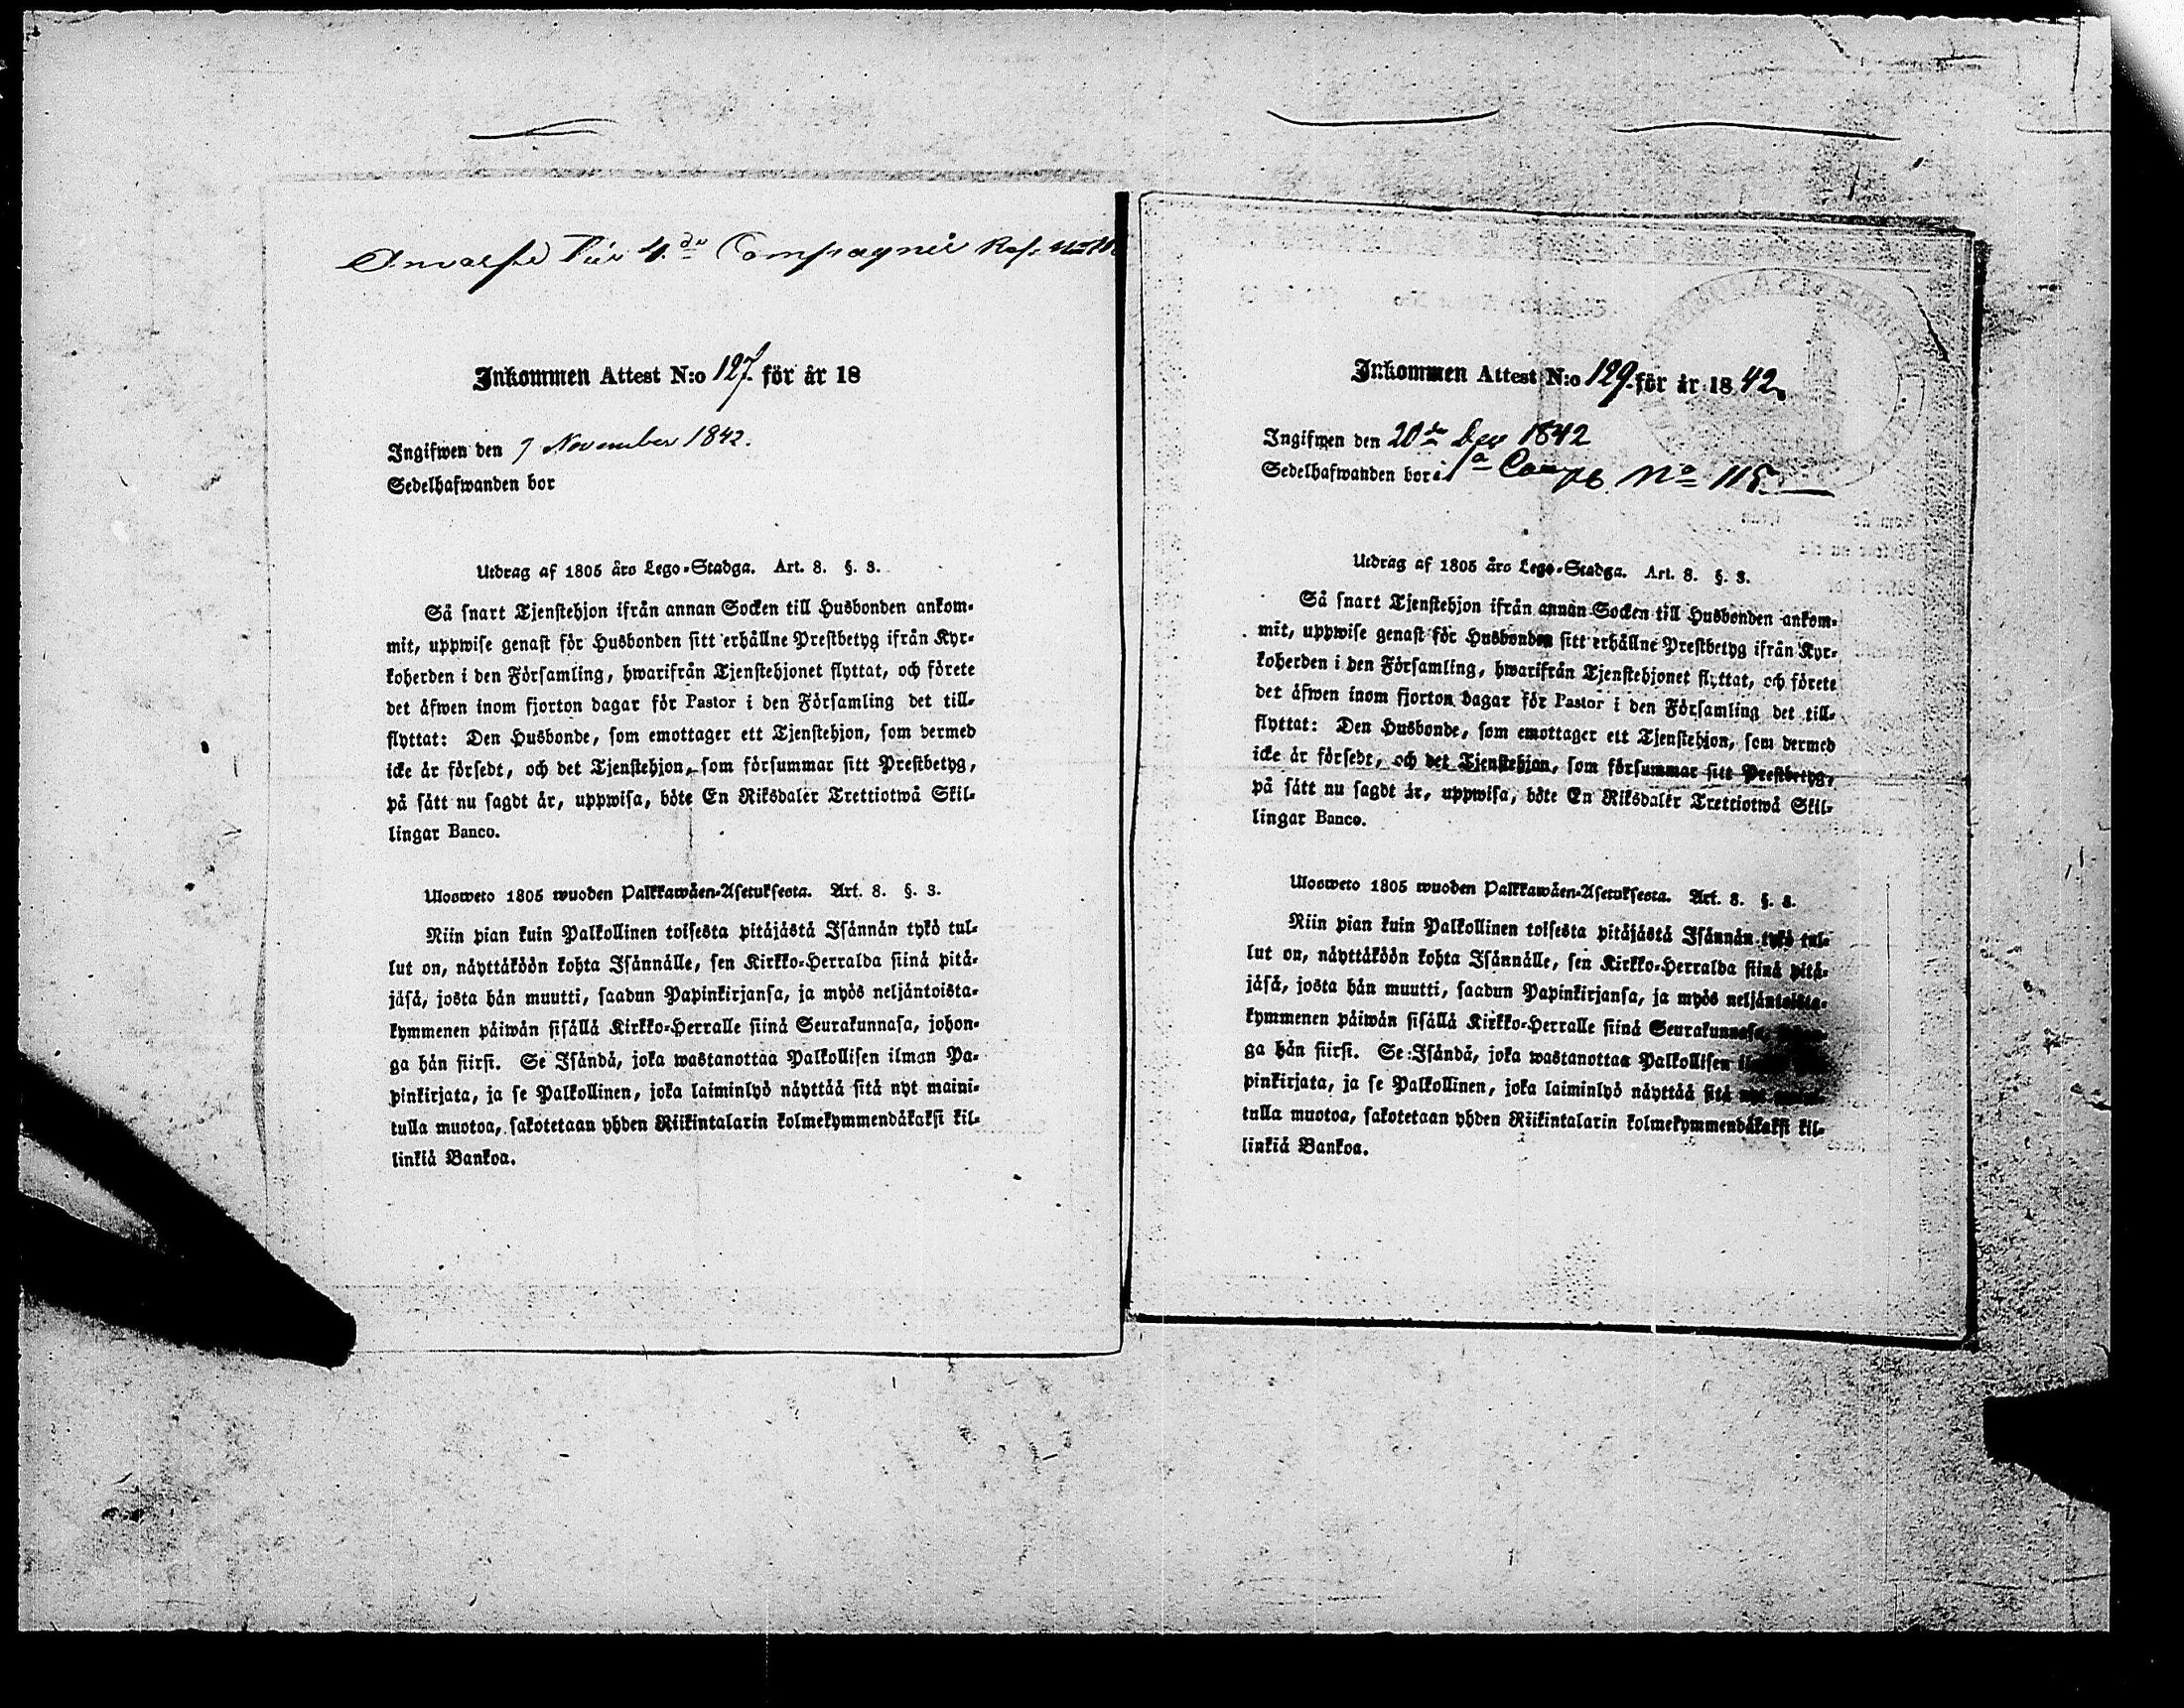 4. de Compagnie
Inkommen Attest N:o 127. för år 18
Ingifwen den 9 November 1842.
Sedelhafwanden bor
Utdrag af 1805 års Lego-Stadga. Art. 8. §. 3.
Så snart Tjenstehjon ifrån annan Socken till Husbonden ankom-
mit, uppwise genast för Husbonden sitt erhållne Prestbetyg ifrån Kyr-
koherden i den Församling, hwarifrån Tjenstehjonet flyttat, och förete
det äfwen inom fjorton dagar för Pastor i den Församling det till-
flyttat: Den Husbonde, som emottager ett Tjenstehjon, som dermed
icke är försedt, och det Tjenstehjon, som försummar sitt Prestbetyg,
på sätt nu sagdt är, uppwisa, böte En Riksdaler Trettiotwå Skil-
lingar Banco.
Ulosweto 1805 wuoden Palkkawäen-Asetuksesta. Art. 8. §. 3.
Niin pian kuin Palkollinen toisesta pitäjästä Isännän tykö tul-
lut on, näyttäköön kohta Isännälle, sen Kirkko-Herralda siinä pitä-
jäsä, josta hän muutti, saadun Papinkirjansa, ja myös neljäntoista-
kymmenen päiwän sisällä Kirkko-Herralle siinä Seurakunnasa, johon-
ga hän siirsi. Se Isändä, joka wastanottaa Palkollisen ilman Pa-
pinkirjata, ja se Palkollinen, joka laiminlyö näyttää sitä nyt maini-
tulla muotoa, sakotetaan yhden Riikintalarin kolmekymmendäkaksi kil-
linkiä Bankoa.
Inkommen Attest N:o 129. för år 18 42.
Ingifwen den 20 de Dec 1842
Sedelhafwanden bor i 1a Comp No 115
Utdrag af 1805 års Lego-Stadga. Art. 8. §. 3.
Så snart Tjenstehjon ifrån annan Socken till Husbonden ankom-
mit, uppwise genast för Husbonden sitt erhållne Prestbetyg ifrån Kyr-
koherden i den Församling, hwarifrån Tjenstehjonet flyttat, och förete
det äfwen inom fjorton dagar för Pastor i den Församling det till-
flyttat: Den Husbonde, som emottager ett Tjenstehjon, som dermed
icke är försedt, och det Tjenstehjon, som försummar sitt Prestbetyg,
på sätt nu sagdt är, uppwisa, böte En Riksdaler Trettiotwå Skil-
lingar Banco.
Ulosweto 1805 wuoden Palkkawäen-Asetuksesta. Art. 8. §. 3.
Niin pian kuin Palkollinen toisesta pitäjästä Isännän tykö tul-
lut on, näyttäköön kohta Isännälle, sen Kirkko-Herralda siinä pitä-
jäsä, josta hän muutti, saadun Papinkirjansa, ja myös neljäntoista-
kymmenen päiwän sisällä Kirkko-Herralle siinä Seurakunnasa,
ga hän siirsi. Se Isändä, joka wastanottaa Palkollisen
pinkirjata, ja se Palkollinen, joka laiminlyö näyttää sitä
tulla muotoa, sakotetaan yhden Riikintalarin kolmekymmendäkaksi kil-
linkiä Bankoa.